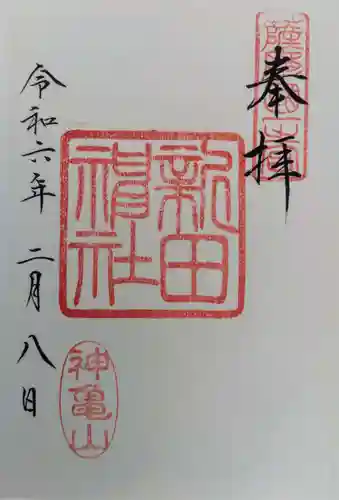 薩摩國一宮
奉拝
新田
神社
令和六年 二月 八日
神亀山